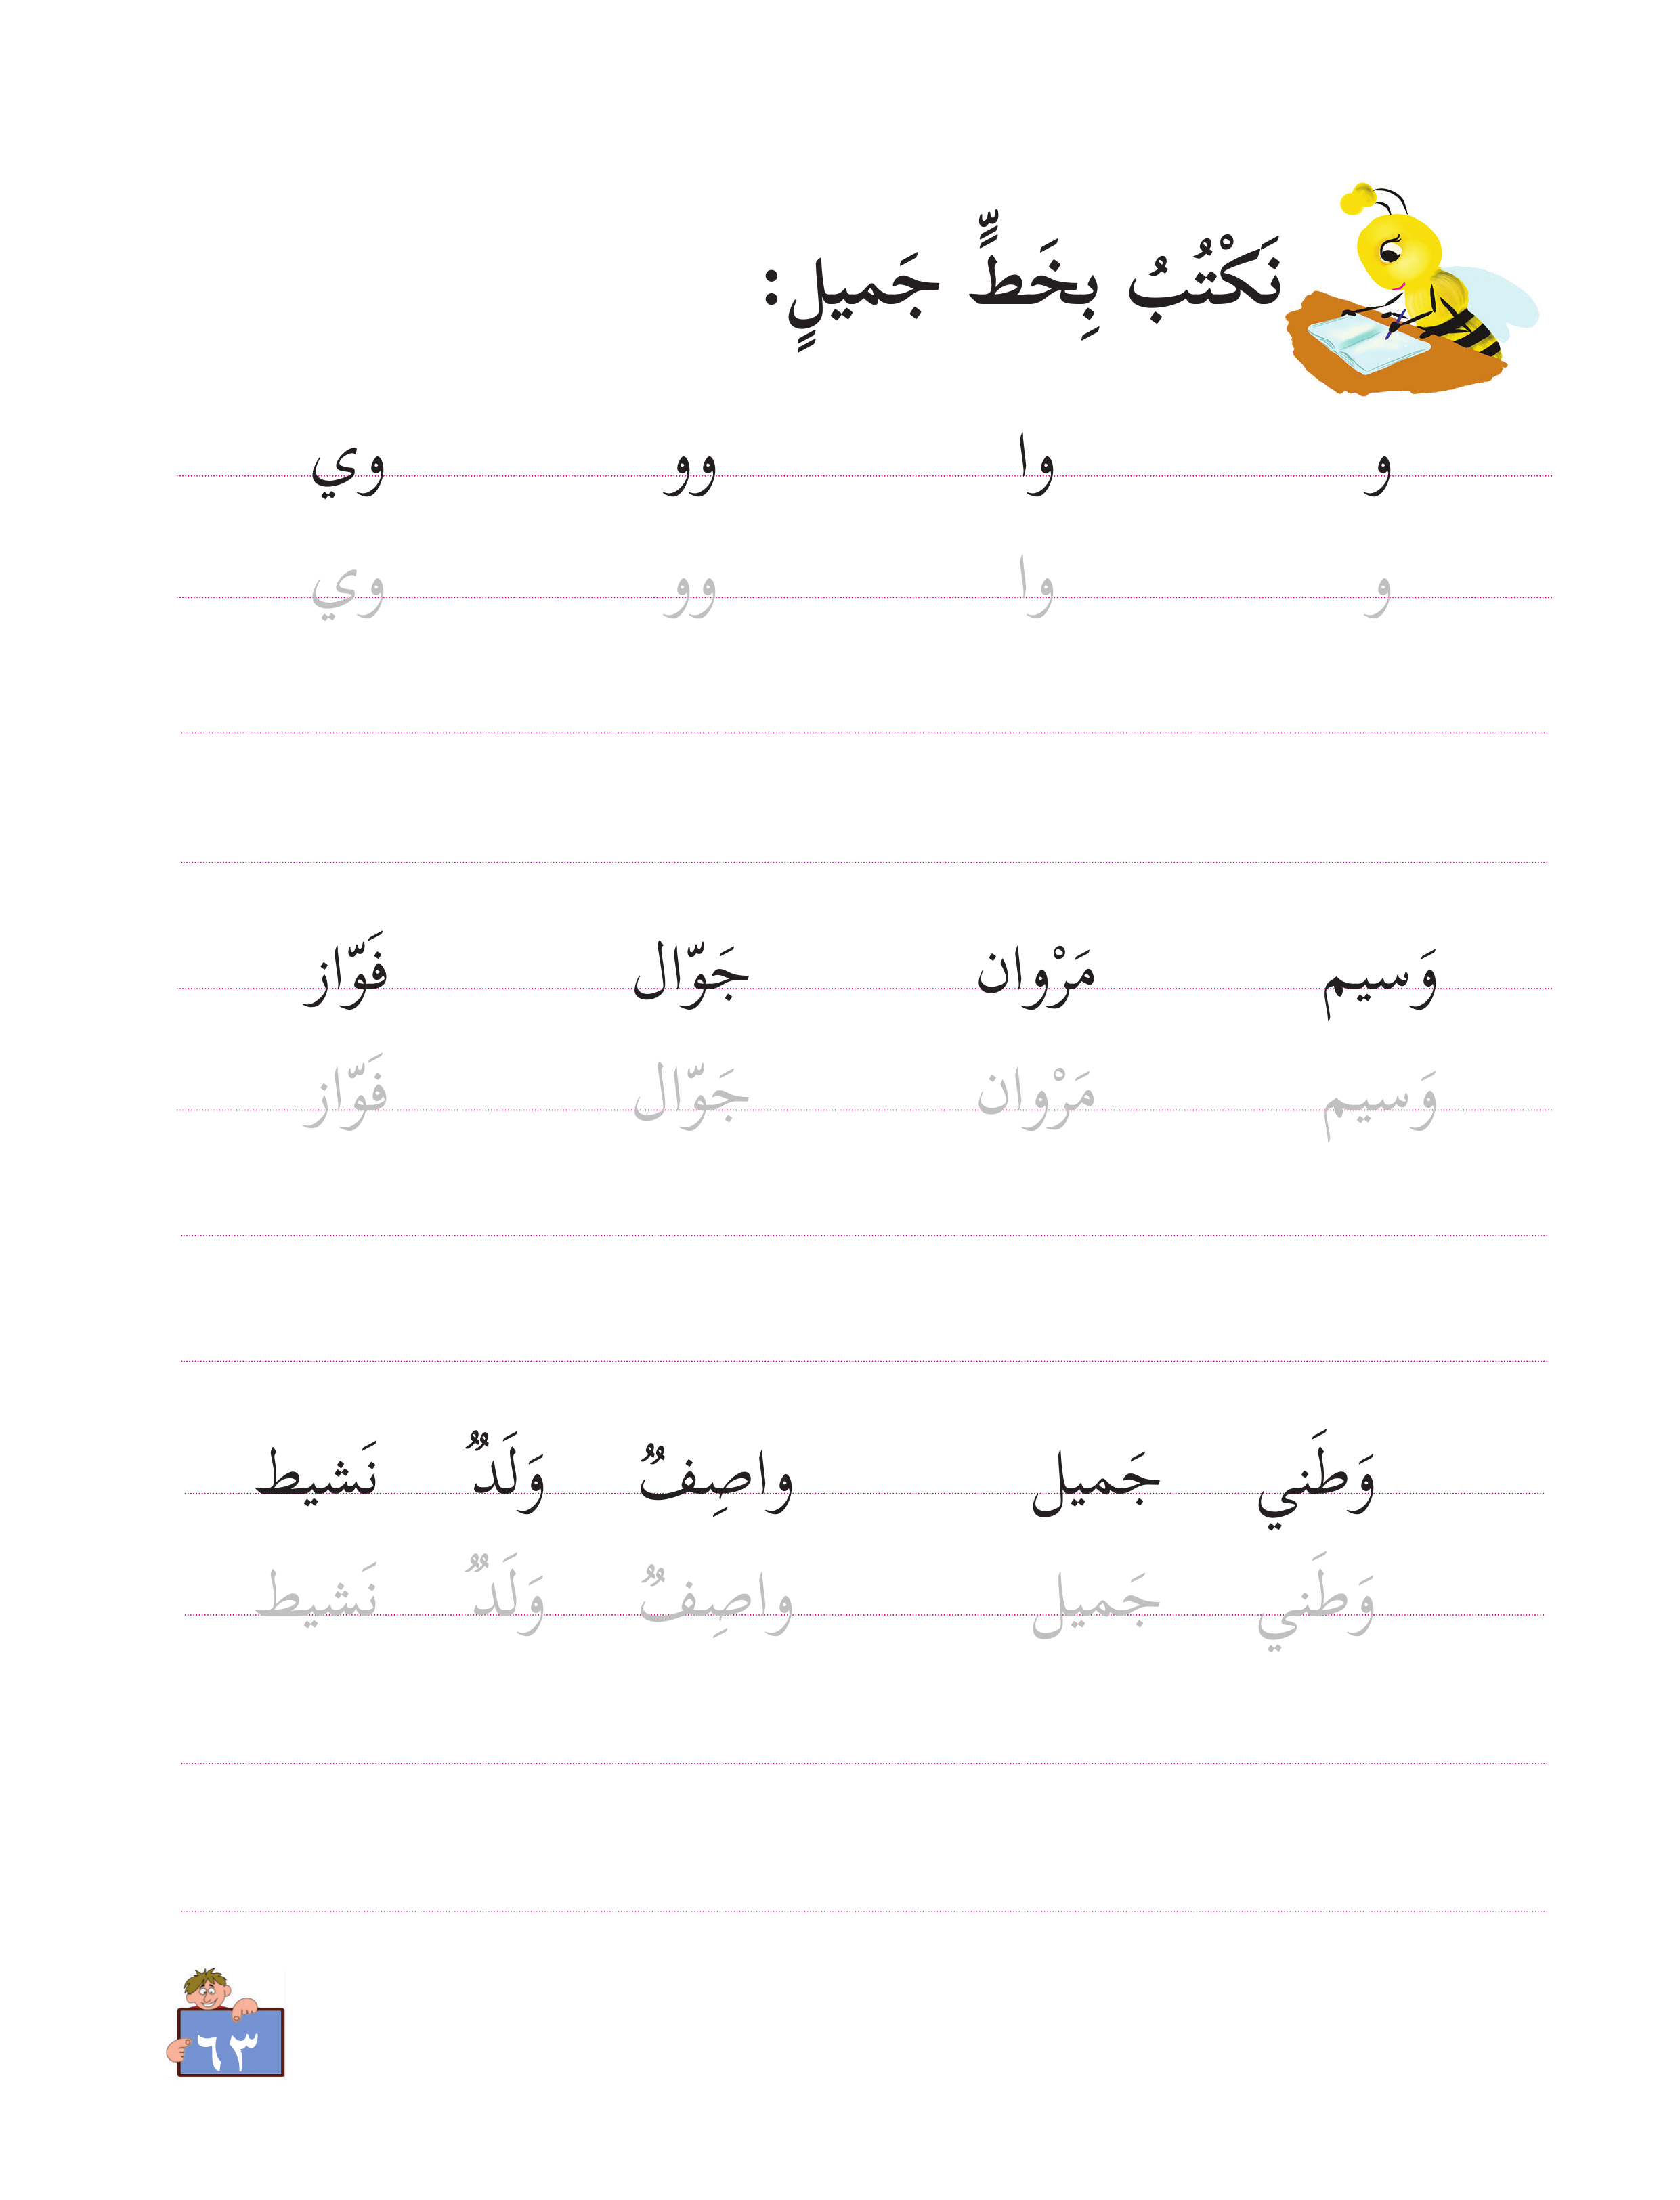 نَكْتُبُ بِخَطٍّ جَميلٍ:
و وا وو وي
و وا وو وي
وَسيم مَرْوان جَوّال فَوّاز
وَسيم مَرْوان جَوّال فَوّاز
وَطَني جَميل واصِفٌ وَلَدٌ نَشيط
وَطَني جَميل واصِفٌ وَلَدٌ نَشيط
٦٣